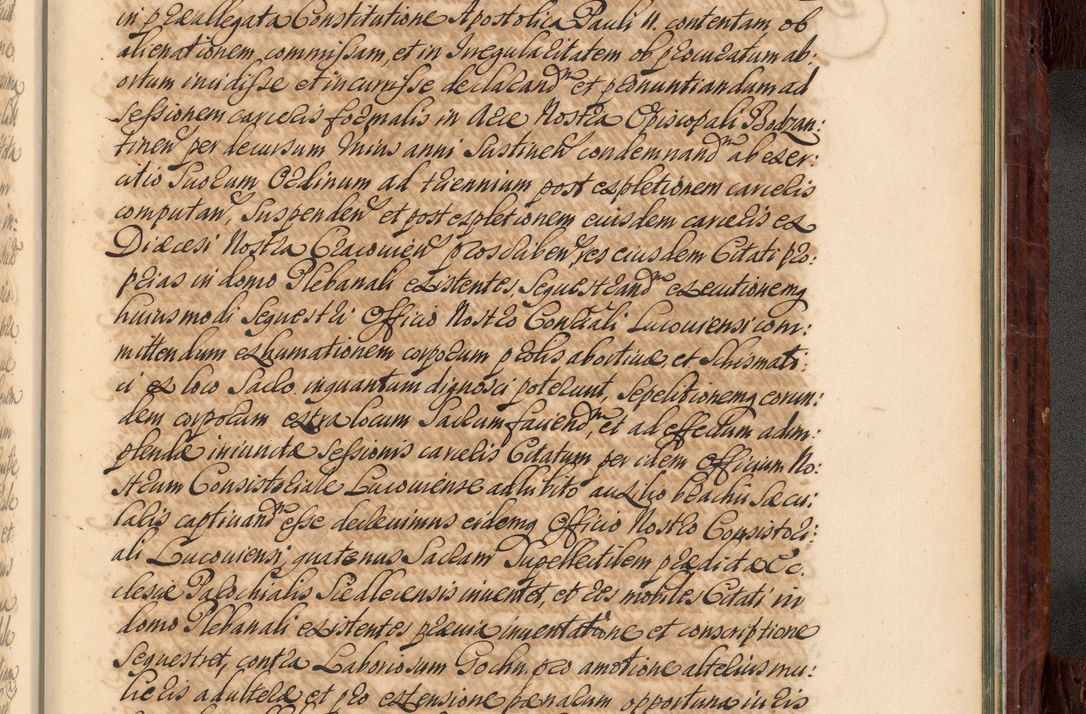 in præallegata Constitutione Apostolica Pauli II. contentam, ob
alienationem commissam, et in Irregularitatem ob procuratum ab:
ortum incidisse et incurrisse declarand͞m et pronuntiandam ad
sessionem carceris formalis in Arce Nostra Episcopali Bodzan:
tinen͞ per decursum Unius anni Sustinen͞ condemnand͞m ab exer:
citio Suorum Ordinum ad triennium post expletionem carceris
computan͞, Suspenden͞ et post expletionem eiusdem carceris ex
Diæcesi Nostra Cracovien͞ proscriben͞, res eiusdem Citati pro:
prias in domo Plebanali existentes, Sequestrand͞m executionemq
huiusmodi Sequestri Officio Nostro Cons͞tali Lucoviensi com:
mittendum exhumationem corporum prolis abortivæ, et Schismati:
ci ex loco Sacro, inquantum dignosci poterunt, Sepelitionemq eorun:
dem corporum extra locum Sacrum faciend͞m, et ad effectum adim:
plendæ iniunctæ Sessionis carceris Citatum per idem Officium No:
strum Consistoriale Lucoviense adhibito auxilio brachii Sæcu:
laris captivand͞m esse decrevimus eidemq Officio Nostro Consistori:
ali Lucoviensi, quatenus Sacram Supellectilem prædictæ Ec:
clesiæ Parochialis Siedlecensis inventet, et res mobiles Citati in
domo Plebanali existentes prævia inventatione et conscriptione
Sequestret, contra Laboriosum Goch͞n. pro amotione alterius mu:
lieris adulteræ et pro extensione pænarum opportuna iuris